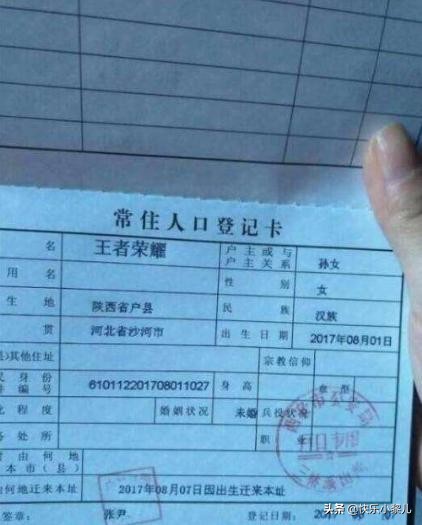 常住人口登记卡
名 王者荣耀 户主或与户主关系 孙女
用名 性别 女
生地 陕西省户县 民族 汉族
贯 河北省沙河市 出生日期 2017年08月01日
县)其他住址 宗教信仰
民身份件编号 610112201708011027 身高 血型
化程度 婚姻状况 未婚 兵役状况
务处所 职业
时由何地本市(县)
何地迁来本址 2017年08月07日因出生迁来本址
签章: 张尹 登记日期: 201
头条 @快乐小骡儿